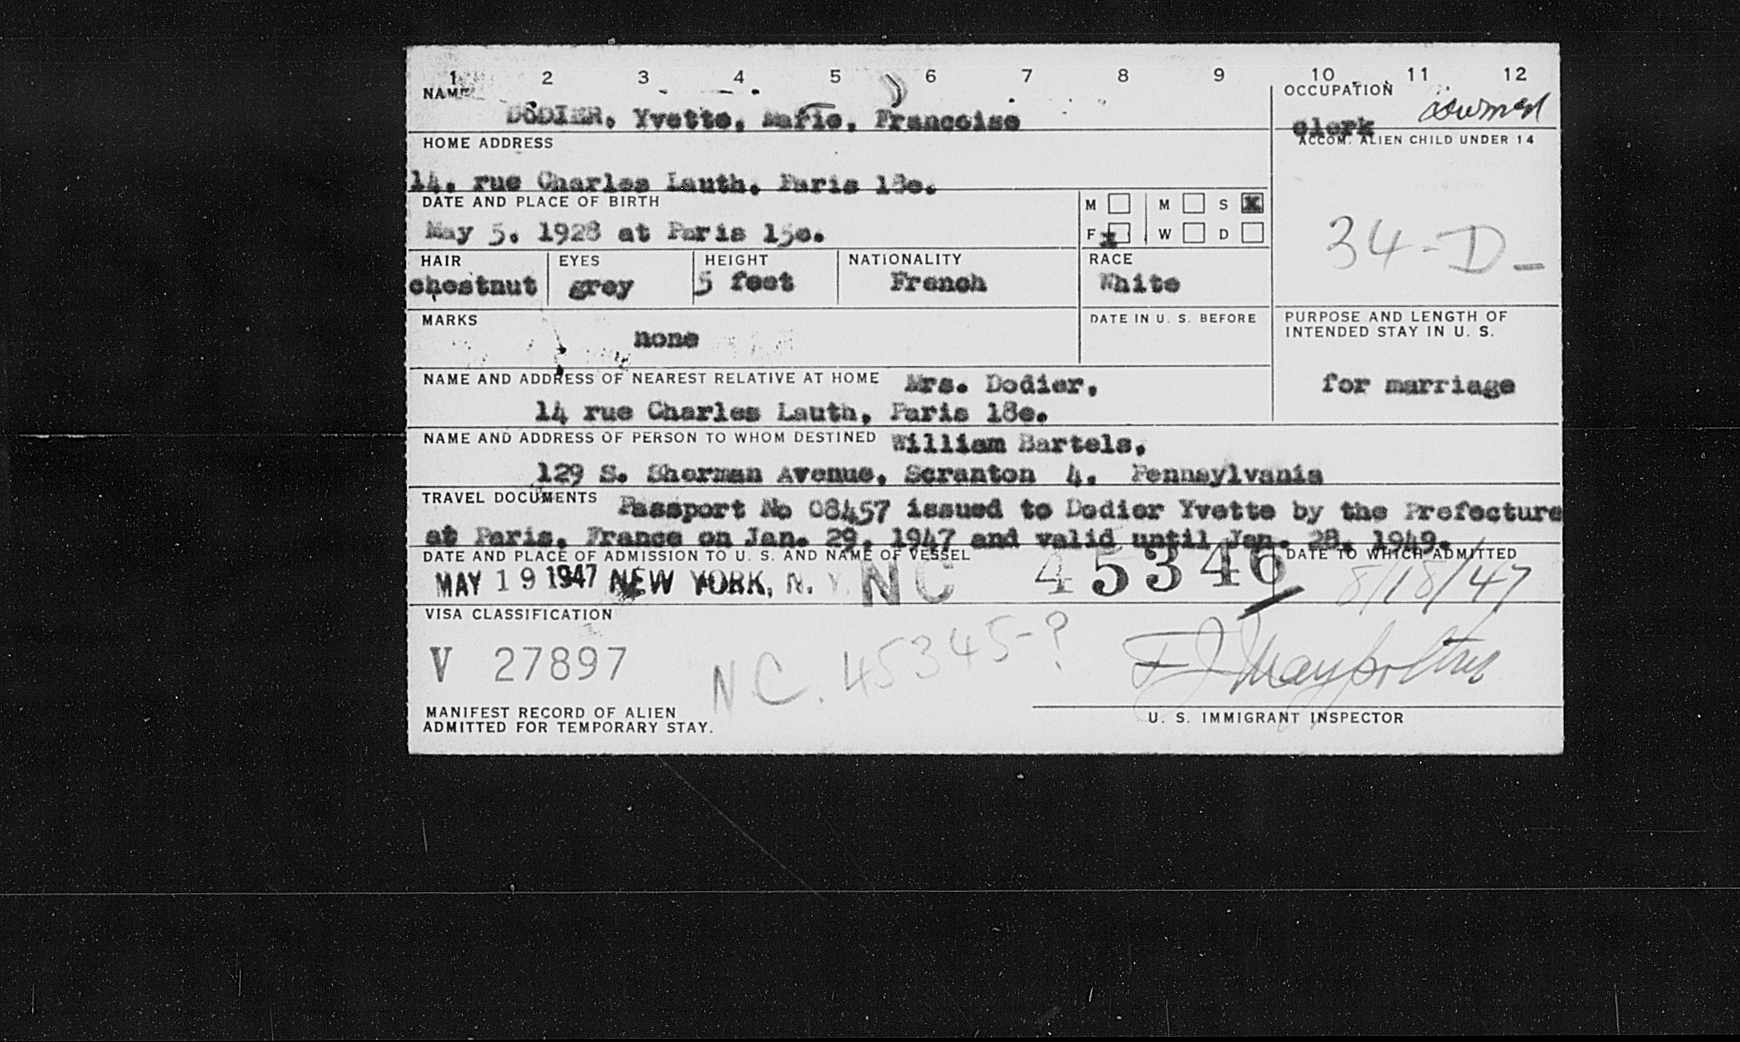 1 2 3 4 5 6 7 8 9 10 11 12
NAME
DODIER, Yvette, Marie, Francoise
OCCUPATION
clerk
HOME ADDRESS
14. rue Charles Lauth. Paris 18e.
ACCOM. ALIEN CHILD UNDER 14
34-D-
DATE AND PLACE OF BIRTH
May 5. 1928 at Paris 15e.
M M S X
F x W D
HAIR EYES HEIGHT NATIONALITY RACE
chestnut grey 5 feet French White
MARKS
none
DATE IN U. S. BEFORE
PURPOSE AND LENGTH OF
INTENDED STAY IN U. S.
for marriage
NAME AND ADDRESS OF NEAREST RELATIVE AT HOME Mrs. Dodier,
14 rue Charles Lauth, Paris 18e.
NAME AND ADDRESS OF PERSON TO WHOM DESTINED William Bartels,
129 S. Sherman Avenue, Scranton 4, Pennsylvania
TRAVEL DOCUMENTS Passport No 08457 issued to Dodier Yvette by the Prefecture
at Paris, France on Jan. 29, 1947 and valid until Jan. 28, 1949.
DATE AND PLACE OF ADMISSION TO U. S. AND NAME OF VESSEL
MAY 19 1947 NEW YORK, N. Y. NC 45346
DATE TO WHICH ADMITTED
8/18/47
VISA CLASSIFICATION
V 27897
NC. 45345-?
MANIFEST RECORD OF ALIEN
ADMITTED FOR TEMPORARY STAY.
U. S. IMMIGRANT INSPECTOR